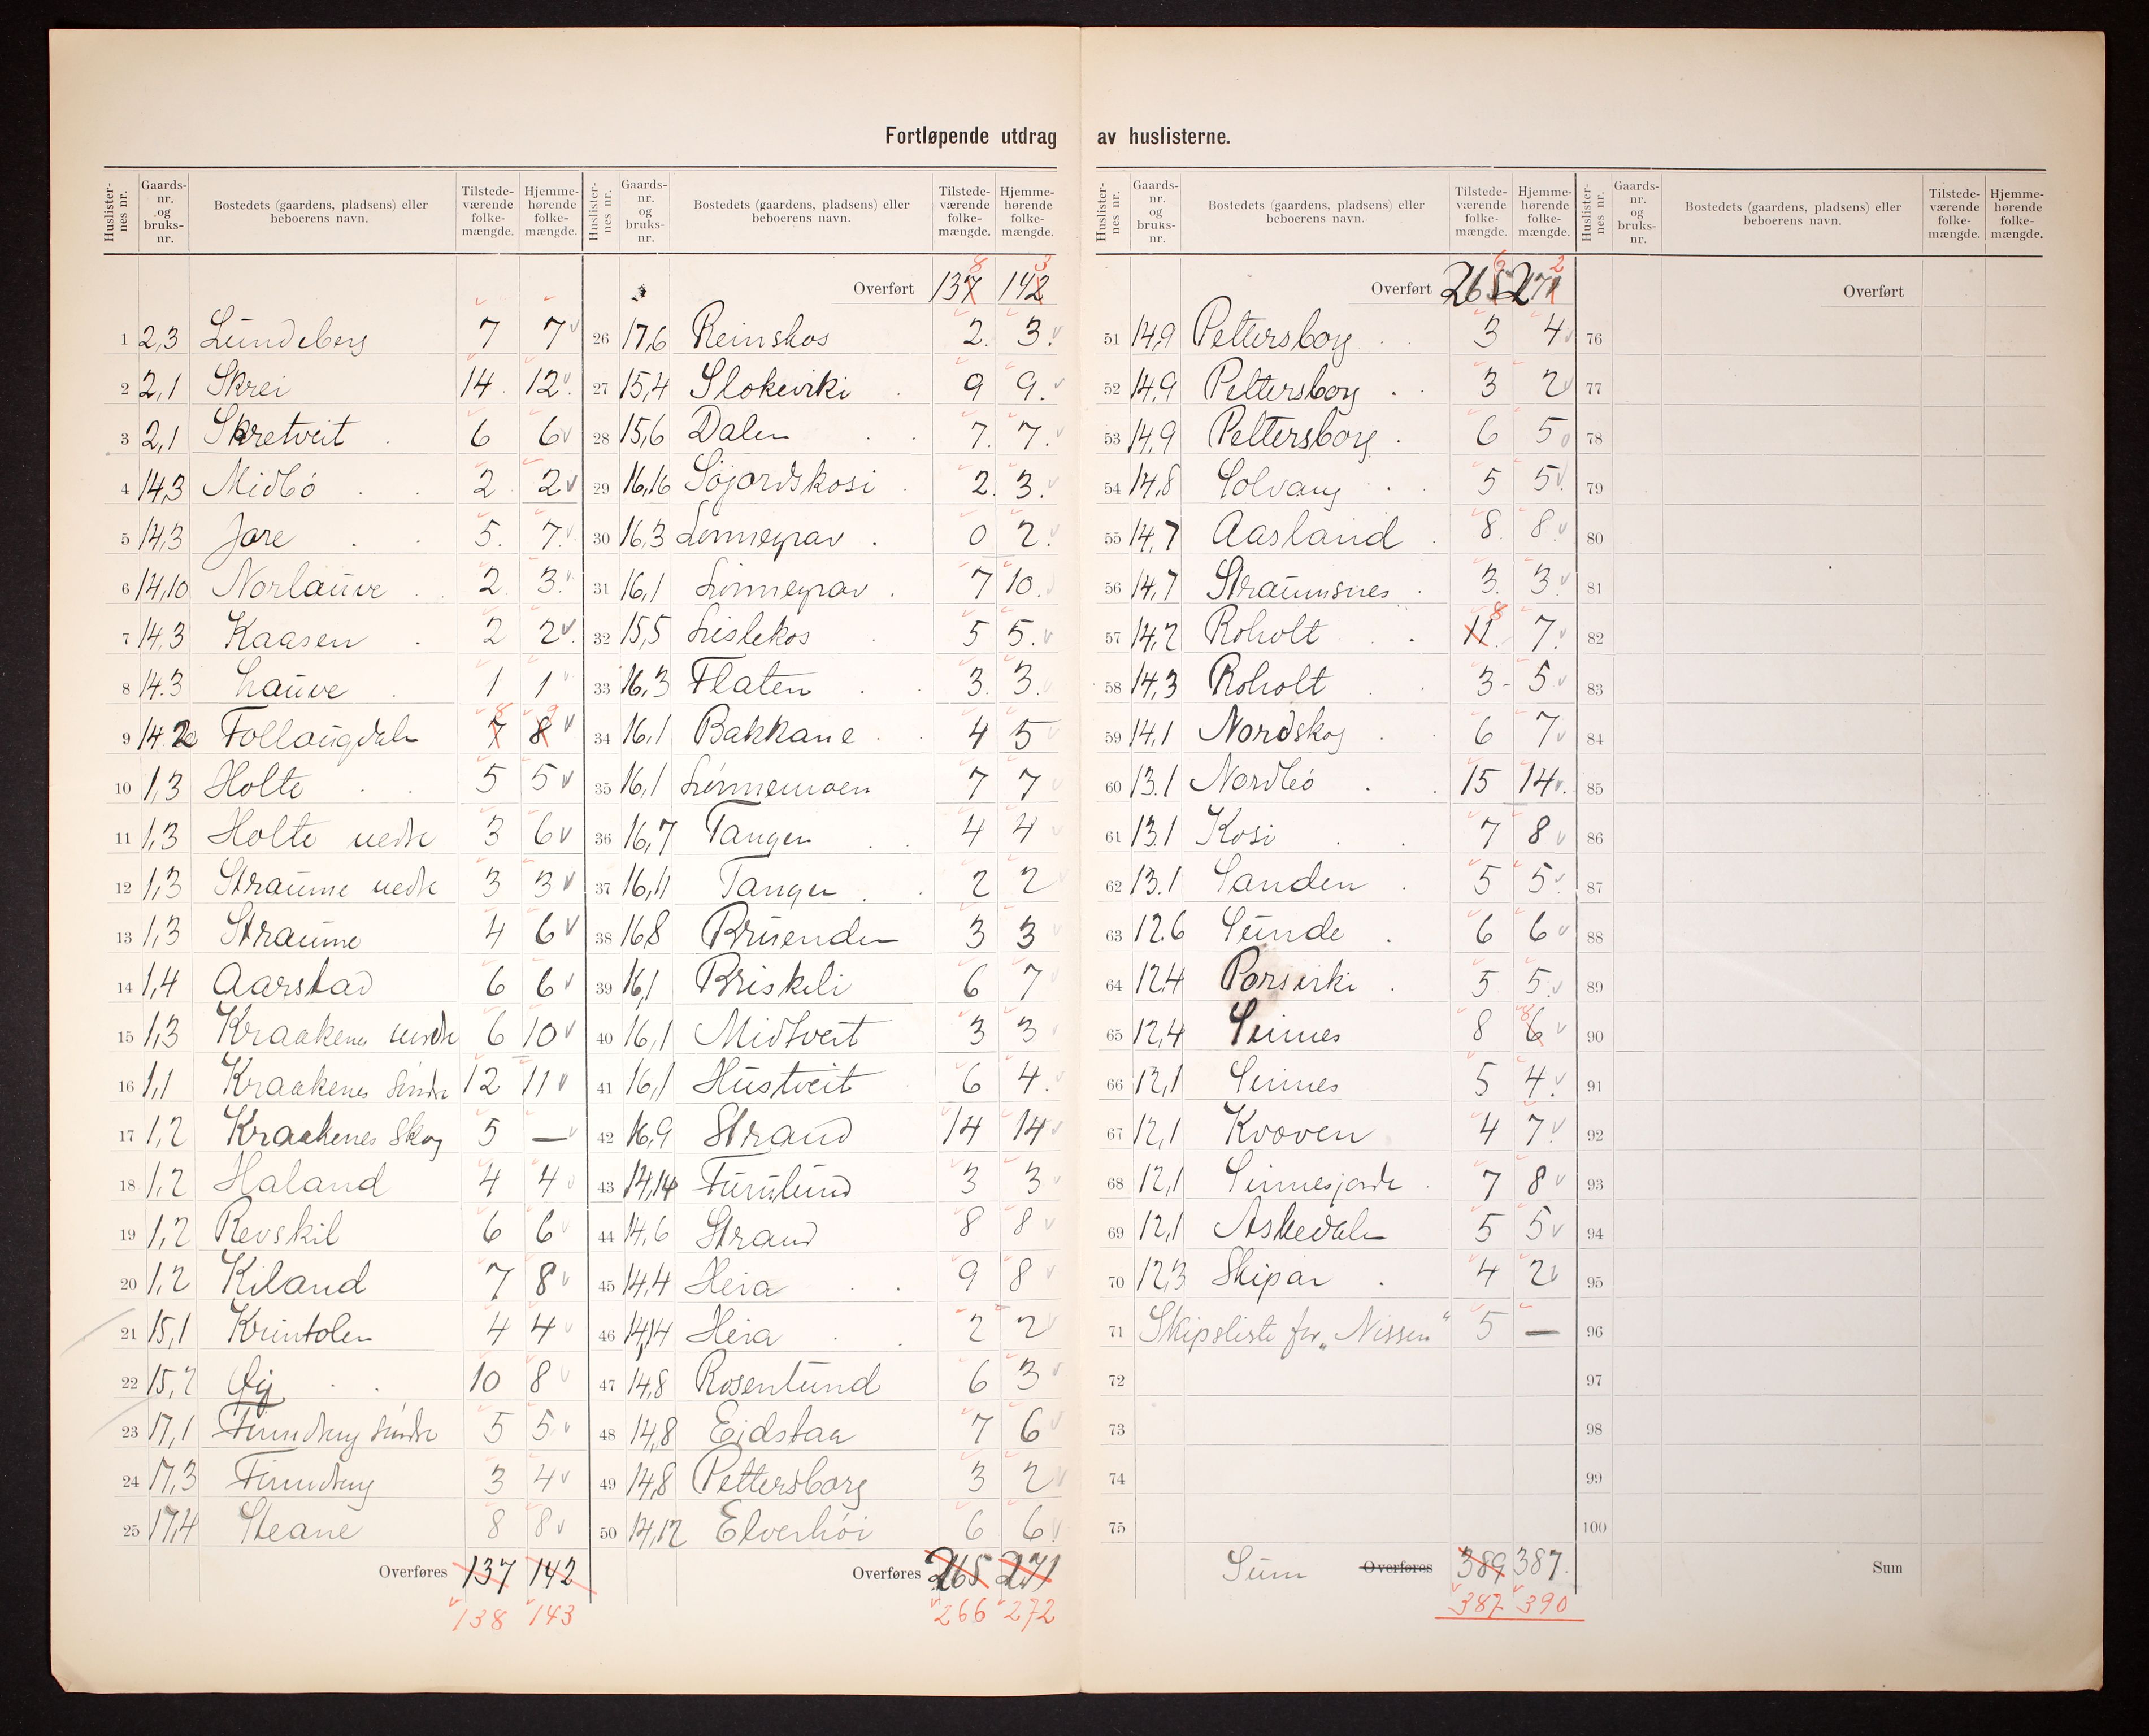 Fortløpende utdrag av huslisterne.
Huslister-nes nr. Gaards-nr. og bruks-nr. Bostedets (gaardens, pladsens) eller beboerens navn. Tilstede-værende folke-mængde. Hjemme-hørende folke-mængde.
1 2,3 Lundeberg 7 7
2 2,1 Skrei 14 12
3 2,1 Skretveit 6 6
4 14,3 Midbö 2 2
5 14,3 Jore 5 7
6 14,10 Norlauve 2 3
7 14,3 Kaasen 2 2
8 14.3 Lauve 1 1
9 14.2 Follaugdalen 7 8 8 9
10 1,3 Holte 5 5
11 1,3 Holte nedre 3 6
12 1,3 Straume nedre 3 3
13 1,3 Straume 4 6
14 1,4 Aarstad 6 6
15 1,3 Kraakenes nordre 6 10
16 1,1 Kraakenes søndre 12 11
17 1,2 Kraakenes Skog 5 —
18 1,2 Haland 4 4
19 1,2 Revskil 6 6
20 1,2 Kiland 7 8
21 15,1 Krintolen 4 4
22 15,2 Øij 10 8
23 17,1 søndre 5 5
24 17,3 3 4
25 17,4 Steane 8 8
Overføres 137 142
138 143
Huslister-nes nr. Gaards-nr. og bruks-nr. Bostedets (gaardens, pladsens) eller beboerens navn. Tilstede-værende folke-mængde. Hjemme-hørende folke-mængde.
Overført 137 8 142 3
26 17,6 Reinskos 2 3
27 15,4 Slokevirki 9 9
28 15,6 Dalen 7 7
29 16,16 Söjordskosi 2 3
30 16,3 Lönnegrav 0 2
31 16,1 Lönnegrav 7 10
32 15,5 Lislekos 5 5
33 16,3 Flaten 3 3
34 16,1 Bakkane 4 5
35 16,1 Lönnemoen 7 7
36 16,7 Tangen 4 4
37 16,11 Tangen 2 2
38 16,8 Bruenden 3 3
39 16,1 Briskeli 6 7
40 16,1 Midtveit 3 3
41 16,1 Hustveit 6 4
42 16,9 Strand 14 14
43 14,14 Furulund 3 3
44 14,6 Strand 8 8
45 14,4 Heia 9 8
46 14,14 Heia 2 2
47 14,8 Rosenlund 6 3
48 14,8 Eidstaa 7 6
49 14,8 Pettersborg 3 2
50 14,12 Elverhöi 6 6
Overføres 265 271
266 272
Huslister-nes nr. Gaards-nr. og bruks-nr. Bostedets (gaardens, pladsens) eller beboerens navn. Tilstede-værende folke-mængde. Hjemme-hørende folke-mængde.
Overført 265 6 271 2
51 14,9 Pettersborg 3 4
52 14,9 Pettersborg 3 2
53 14,9 Pettersborg 6 5
54 14,8 Solvang 5 5
55 14,7 Aasland 8 8
56 14,7 Straumsnes 3 3
57 14,2 Roholt 11 8 7
58 14,3 Roholt 3 5
59 14,1 Nordskog 6 7
60 13.1 Nordbö 15 14
61 13.1 Kosi 7 8
62 13.1 Sanden 5 5
63 12.6 Sunde 6 6
64 12,4 Porsirki 5 5
65 12,4 Sinnes 8 6 8
66 12,1 Sinnes 5 4
67 12,1 Kvoven 4 7
68 12,1 Sinnesjorde 7 8
69 12,1 Askedalen 5 5
70 12,3 Skipar 4 2
71 Skipsliste for „Nissen" 5 —
72
73
74
75
Sum Overføres 389 387
387 390
Huslister-nes nr. Gaards-nr. og bruks-nr. Bostedets (gaardens, pladsens) eller beboerens navn. Tilstede-værende folke-mængde. Hjemme-hørende folke-mængde.
Overført
76
77
78
79
80
81
82
83
84
85
86
87
88
89
90
91
92
93
94
95
96
97
98
99
100
Sum